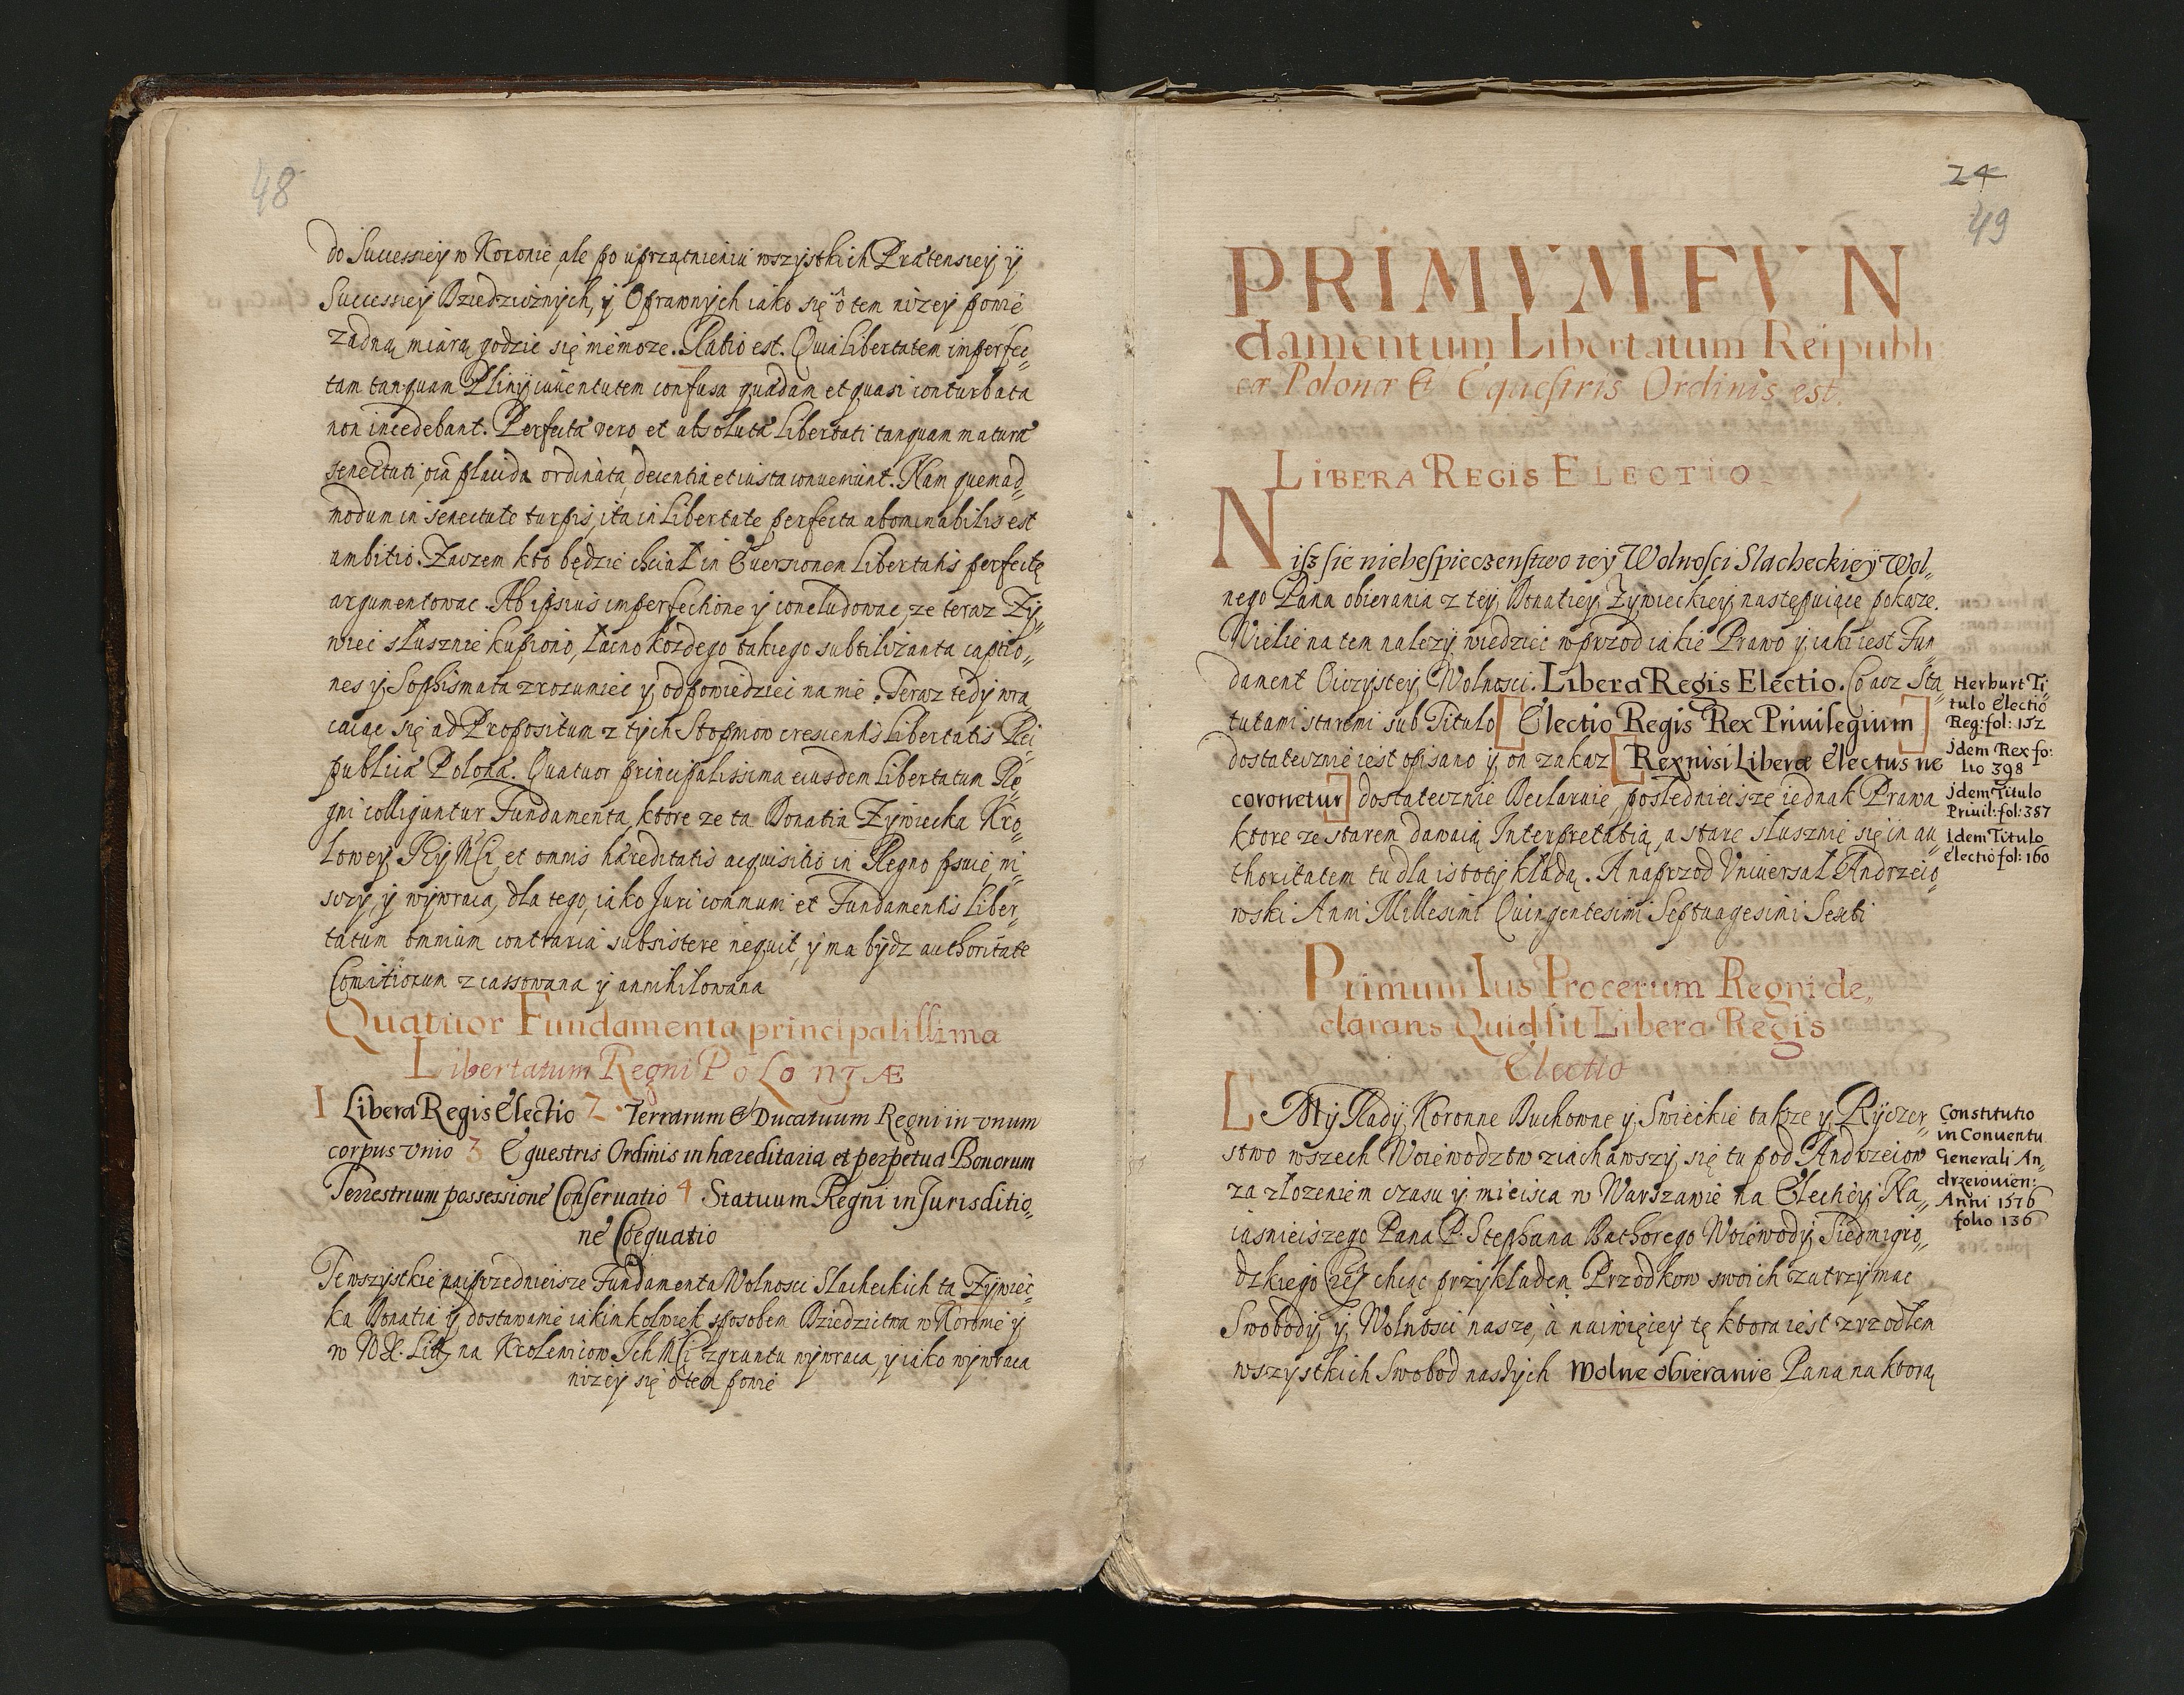 48
do Successiey w Koronie, ale po uprzątnieniu wszystkich Prætensiey y
Successiey Dziedzicznych, y Oprawnych iako się o tem nizey powie
zadną miarą godzic się niemoze. Ratio est. Quia Libertatem imperfec„
tam tanquam Plinÿ iuuentutem confusa quædam et quasi conturbata
non incedebant. Perfectæ vero et absolutæ Libertati tanquam maturæ
senectuti, oia placida ordinata, decentia et iusta conueniunt. Nam quemad„
modum in senectute turpis, ita in Libertate perfecta abominabilis est
ambitio. Zaczem kto będzie chciał in Euersionem Libertatis perfectę
argumentowac. Ab ipsius imperfectione y concludowac, ze teraz Zy„
wiec słusznie kupiono, łacno kozdego takiego subtilizanta captio„
nes y Sophismata zrozumiec y odpowiedziec na nie. Teraz tedy wra„
caiąc się ad Propositum z tych Stopniow crescentis Libertatis Rei„
publicæ Polonæ. Quatuor principalissima eiusdem Libertatum Re„
gni colliguntur Fundamenta, ktore ze ta Donatia Zywiecka Kro„
lowey JEy MCi et omnis hæreditatis acquisitio in Regno psuie, ni„
sczy, y wywraca, dla tego, iako Juri communi et Fundamentis Liber„
tatum omnium contraria subsistere nequit, y ma bydz authoritate
Comitiorum zcassowana y annihilowana
Quatuor Fundamenta principalissima
Libertatum Regni POLONIÆ
1 Libera Regis Electio 2. Terrarum & Ducatuum Regni in vnum
corpus vnio 3 Equestris Ordinis in hæreditaria et perpetua Bonorum
Terrestrium possessione Conseruatio 4 Statuum Regni in Jurisditio„
ne Coequatio
Te wszystkie naiprzednieisze Fundamenta Wolnosci Slacheckich ta Zywiec„
ka Donatia y dostawanie iakimkolwiek sposobem Dziedzictwa w Koronie y
w WX. Litt na Krolewicow Ich MCi zgruntu wywraca, y iako wywraca
nizey się o tem powie
24
49
PRIMVM FVN
damentum Libertatum Reipubli
cæ Polonæ & Equestris Ordinis est.
LIBERA REGIS ELECTIO.
Nisz sie niebespieczenstwo tey Wolnosci Slacheckiey Wol„
nego Pana obierania z tey Donatiey Zywieckiey nastepuiące pokaze.
Wielie na tem nalezy wiedziec wprzod iakie Prawo y iaki iest Fun
dament Oiczystey Wolnosci. Libera Regis Electio. Co acz Sta„
tutami staremi sub Titulo [Electio Regis Rex Priuilegium]
dostatecznie iest opisano y on zakaz [Rex nisi Liberæ Electus ne
coronetur] dostatecznie Declaruie, poslednieisze iednak Prawa
ktore ze starem dawaią Interpretatią, a stare słusznie się in au„
thoritatem tu dla istoty kładą. A naprzod Vniuersał Andrzeio„
wski Anni Millesimi Quingentesimi Septuagesimi Sexti
Herburt Ti„
tulo Electio
Reg: fol: 152
jdem Rex fo:
lio 398
jdem Titulo
Priuil: fol: 387
Idem Titulo
Electio fol: 160
Primum Ius Procerum Regni de„
clarans Quid sit Libera Regis
Electio
My Rady Koronne Duchowne y Swieckie takze y Ryczer„
stwo wszech Woiewodztw ziachawszy się tu pod Andrzeiow
za złozeniem czasu y mieisca w Warszawie na Elechiey Na„
iasnieiszego Pana P. Stephana Bathorego Woiewody Siedmigro„
dzkiego &c chcąc przykładem Przodkow swoich zatrzymac
Swobody y Wolnosci nasze, à naiwięcey tę ktora iest zrzodłem
wszystkich Swobod naszych Wolne obieranie Pana na ktorą
Constitutio
in Conuentu
Generali An„
drzeiouien:
Anni 1576
folio 136